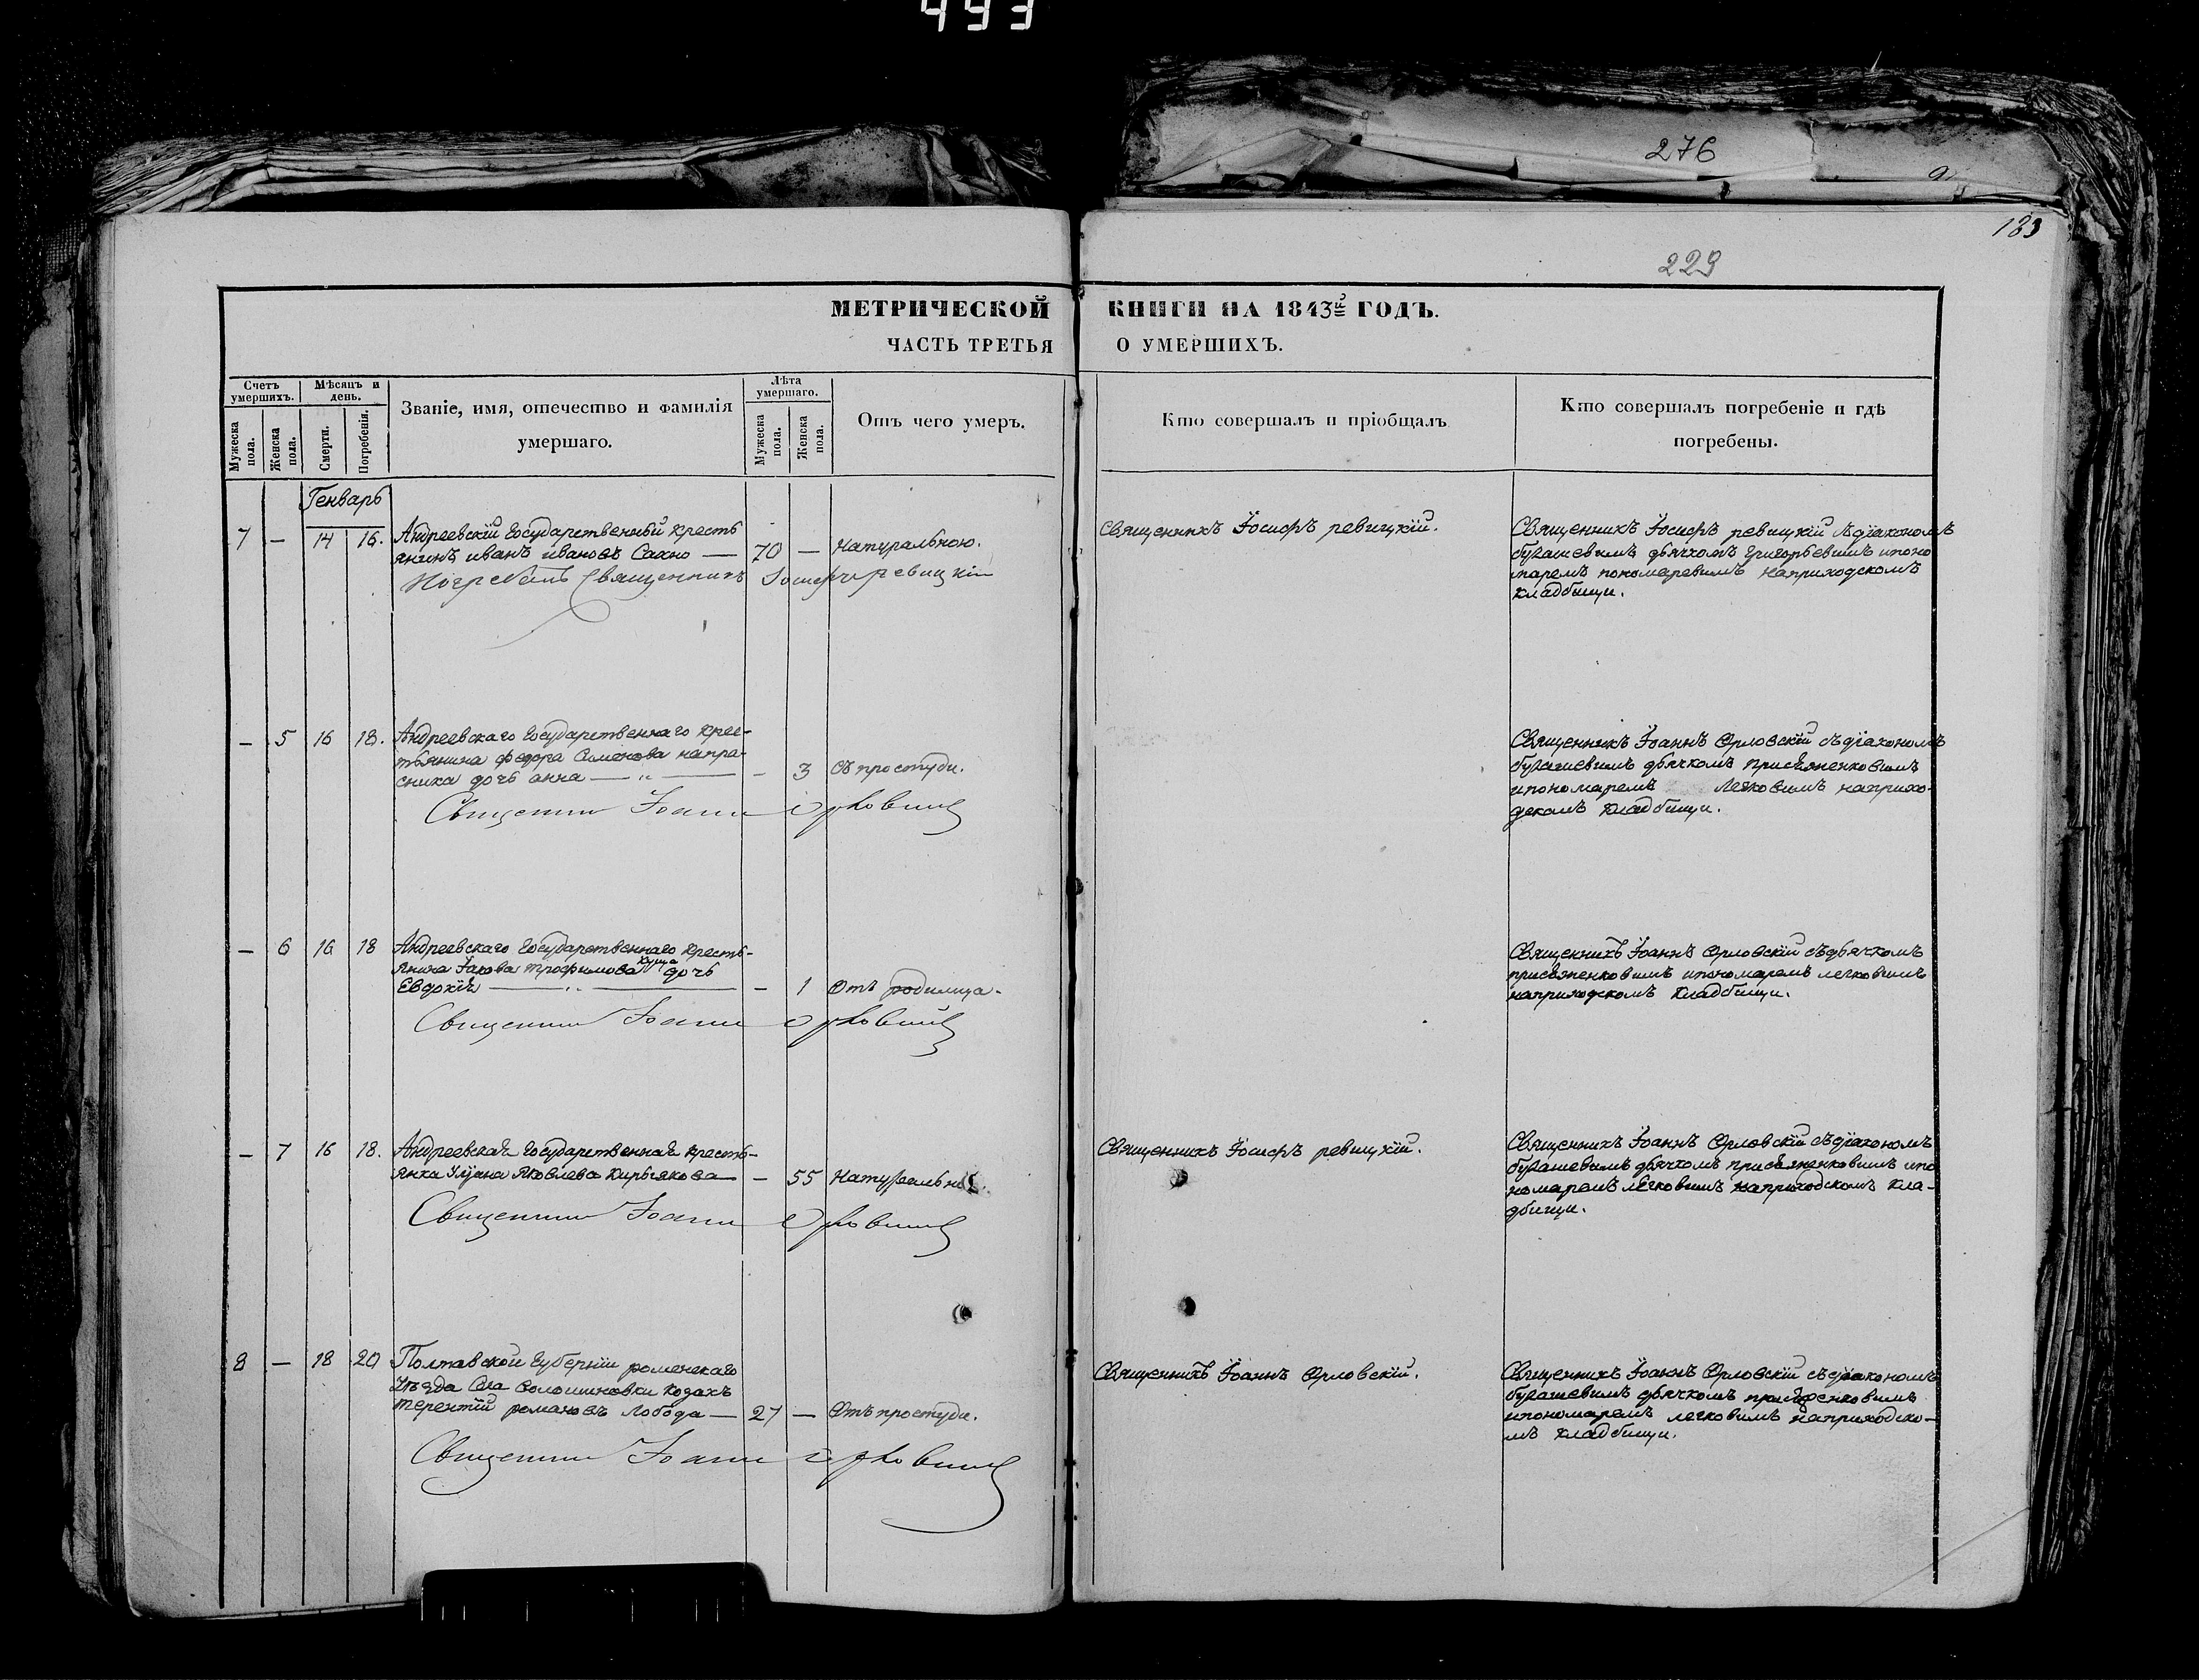 493
276
183
229
МЕТРИЧЕСКОЙ КНИГИ НА 1843й ГОДЪ.
ЧАСТЬ ТРЕТЬЯ О УМЕРШИХЪ.
Счетъ умершихъ.
Мѣсяцъ и день.
Званіе, имя, отечество и фамилія умершаго.
Лѣта умершаго.
Отъ чего умеръ.
Кто совершалъ и пріобщалъ
Кто совершалъ погребеніе и гдѣ погребены.
Мужеска пола.
Женска пола.
Смерти.
Погребенія.
Мужеска пола.
Женска пола.
Генварь
7 — 14 16. Андреевскій Государственный кресть
янинъ иванъ ивановъ Сахно — 70 — Натуральною.
Погребалъ Священникъ Іосифъ Ревицкій
Священникъ Іосифъ ревицкій.
Священникъ Іосифъ ревицкій съдіакономъ
бугашевимъ дьячкомъ григорьевимъ ипоно
маремъ пономаревимъ наприходскомъ
кладбищи.
— 5 16 18. Андреевскаго Государственнаго крес-
тьянина федора Сименова напра-
сника дочь анна — „ — — 3 Съ простуди.
Священникъ Іоаннъ Орловскій
Священникъ Іоаннъ Орловскій съдіакономъ
бугашевимъ дьячкомъ присяженковимъ
ипономаремъ легковимъ наприхо-
дскомъ кладбищи.
— 6 16 18 Андреевскаго Государственнаго кресть-
янина Іакова трофимова куща дочь
Евдокія — „ — — 1 Отъ родимца.
Священникъ Іоаннъ Орловскій
Священникъ Іоаннъ Орловскій съдьячкомъ
присяженковимъ ипономаремъ легковимъ
наприходскомъ кладбищи.
— 7 16 18. Андреевская Государственная кресть-
янка Уліана Яковлева Кирьякова — — 55 Натуральн
Священникъ Іоаннъ Орловскій
Священникъ Іосифъ ревицкій.
Священникъ Іоаннъ Орловскій съдіакономъ
бугашевимъ дьячкомъ присяженковимъ ипо
номаремъ легковимъ наприходскомъ кла-
дбищи.
8 — 18 20 Полтавской губерніи роменскаго
уѣзда Села Солошиновки козакъ
терентій романовъ лобода — 27 — Отъ простуди.
Священникъ Іоаннъ Орловскій
Священникъ Іоаннъ Орловскій.
Священникъ Іоаннъ Орловскій съдіакономъ
бугашевимъ дьячкомъ присяженковимъ
ипономаремъ легковимъ наприходско-
мъ кладбищи.